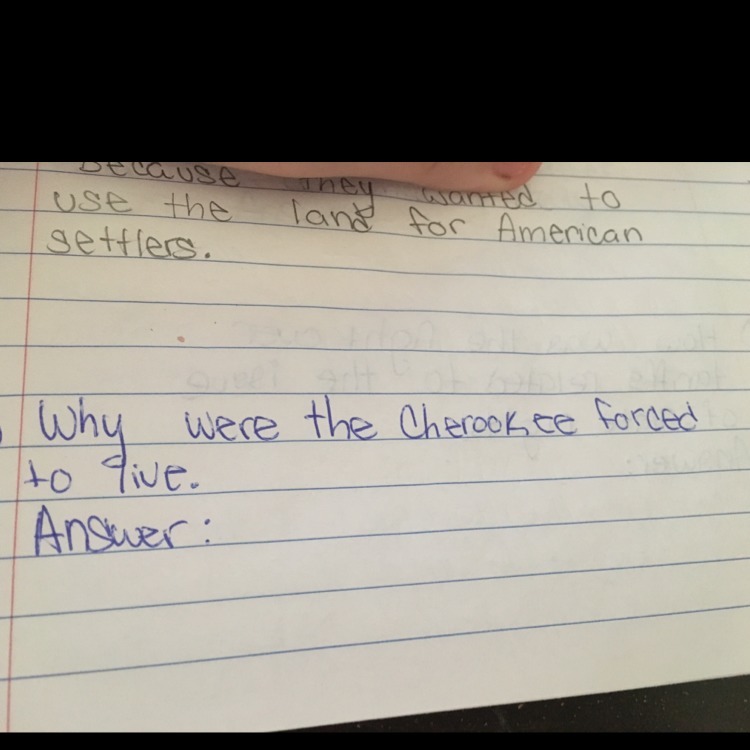 Because they wanted to
use the land for American
settlers.
Why were the Cherookee forced
to give.
Answer: